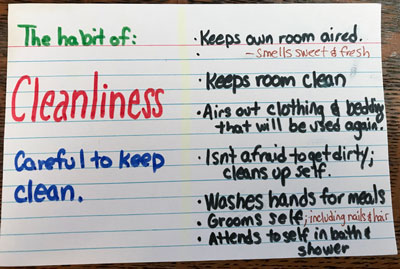 The habit of:
Cleanliness
Careful to keep
clean.
· Keeps own room aired.
· - smells sweet & fresh
· Keeps room clean
· Airs out clothing & bedding
that will be used again.
· Isn't afraid to get dirty;
cleans up self.
· Washes hands for meals
· Grooms self; including nails & hair
· Attends to self in bath &
shower